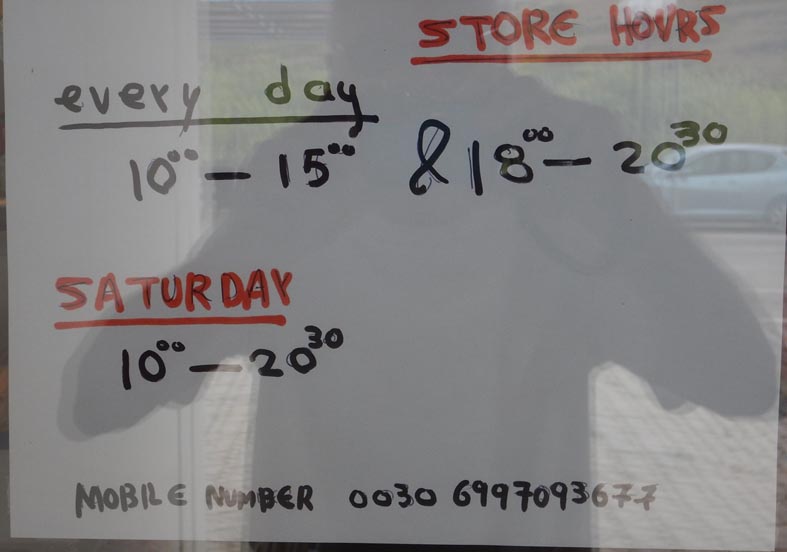 STORE HOURS
every day
10⁰⁰ – 15⁰⁰ & 18⁰⁰ – 20³⁰
SATURDAY
10⁰⁰ – 20³⁰
MOBILE NUMBER 0030 6997093677